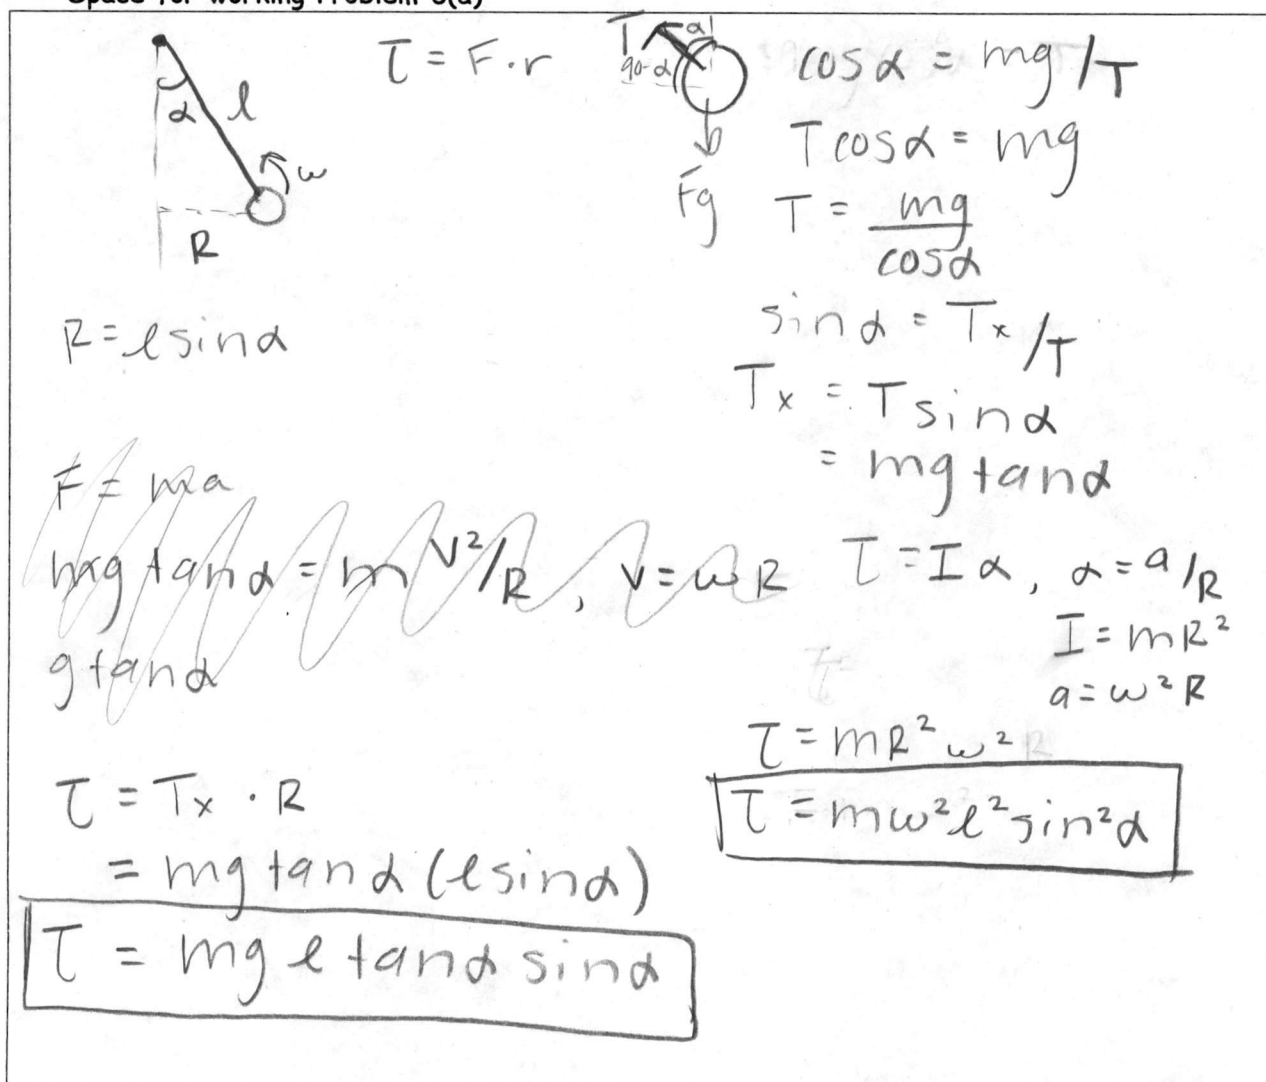 Space for working Problem 3(a)
α l
ω
R
τ = F · r
T α
90-α
Fg
cosα = mg/T
Tcosα = mg
T = mg/cosα
sinα = Tx/T
Tx = Tsinα
= mg tanα
R = l sinα
F = ma
mg tanα = m v²/R, v = ωR
g tanα
τ = Iα, α = a/R
I = mR²
a = ω²R
τ = mR²ω²
τ = mω²l²sin²α
τ = Tx · R
= mg tanα (l sinα)
τ = mg l tanα sinα